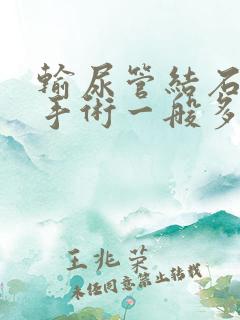 輸尿管結石
手術一般多
王兆荣
未经同意禁止转载